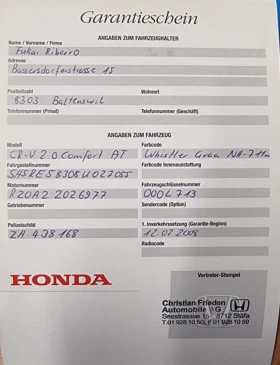 Garantieschein
ANGABEN ZUM FAHRZEUGHALTER
Name / Vorname / Firma
Fukai Ribeiro
Adresse
Bassersdorferstrasse 15
Postleitzahl Wohnort
8303 Baltenswil
Telefonnummer (Privat) Telefonnummer (Geschäft)
ANGABEN ZUM FAHRZEUG
Modell Farbcode
CR-V 2.0 Comfort AT Whistler Graa NH-711m
Fahrgestellnummer Farbcode Innenausstattung
SHSRE58308U027055
Motornummer Fahrzeugschlüsselnummer
R20A2 2026977 000L713
Getriebenummer Sendercode (Option)
Polizeischild 1. Inverkehrsetzung (Garantie-Beginn)
ZH 438168 12.07.2008
Radiocode
HONDA
Vertreter-Stempel
Christian Frieden
Automobile AG
Seestrasse 8712 Stäfa
T 01 928 10 50 F 01 928 10 59